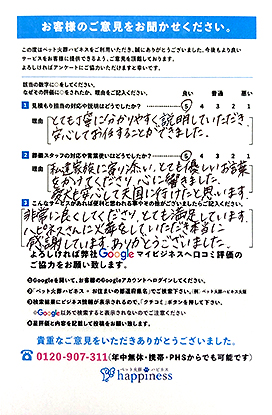 お客様のご意見をお聞かせください。
この度はペット火葬ハピネスをご利用いただき、誠にありがとうございました。今後もより良い
サービスをお客様に提供できるよう、ご意見を頂戴しております。
よろしければアンケートにご協力いただけますと幸いです。
該当の数字に○をしてください。
なぜその評価に○をされたか、理由をご記入ください。
良い 普通 悪い
1 見積もり担当の対応や説明はどうでしたか?
5 4 3 2 1
理由
とても丁寧に分かりやすく説明していただき、
安心してお任せすることができました。
2 葬儀スタッフの対応や言葉使いはどうでしたか?
5 4 3 2 1
理由
私達家族に寄り添い、とても優しいお言葉
をかけてくださり心に響きました。
愛犬も安心して天国に行けたと思います
3 こんなサービスがあれば便利と思われる事やその他がございましたらご記入ください。
非常に良くしてくださり、とても満足しています。
ハピネスさんに火葬をしていただき本当に
感謝しています。ありがとうございました。
よろしければ弊社Googleマイビジネスへ口コミ評価の
ご協力をお願い致します。
❶Googleを開いて、お客様のGoogleアカウントへログインしてください。
❷「ペット火葬ハピネス + お住まいの都道府県名」でご検索下さい。(例)ペット火葬ハピネス大阪
❸検索結果にビジネス情報が表示されるので、「クチコミ」ボタンを押して下さい。
※Google以外で検索すると表示されないのでご注意ください
❹星評価と内容を記載して投稿をお願い致します。
貴重なご意見をいただきありがとうございました。
0120-907-311(年中無休・携帯・PHSからでも可能です)
ペット火葬 ハピネス
happiness